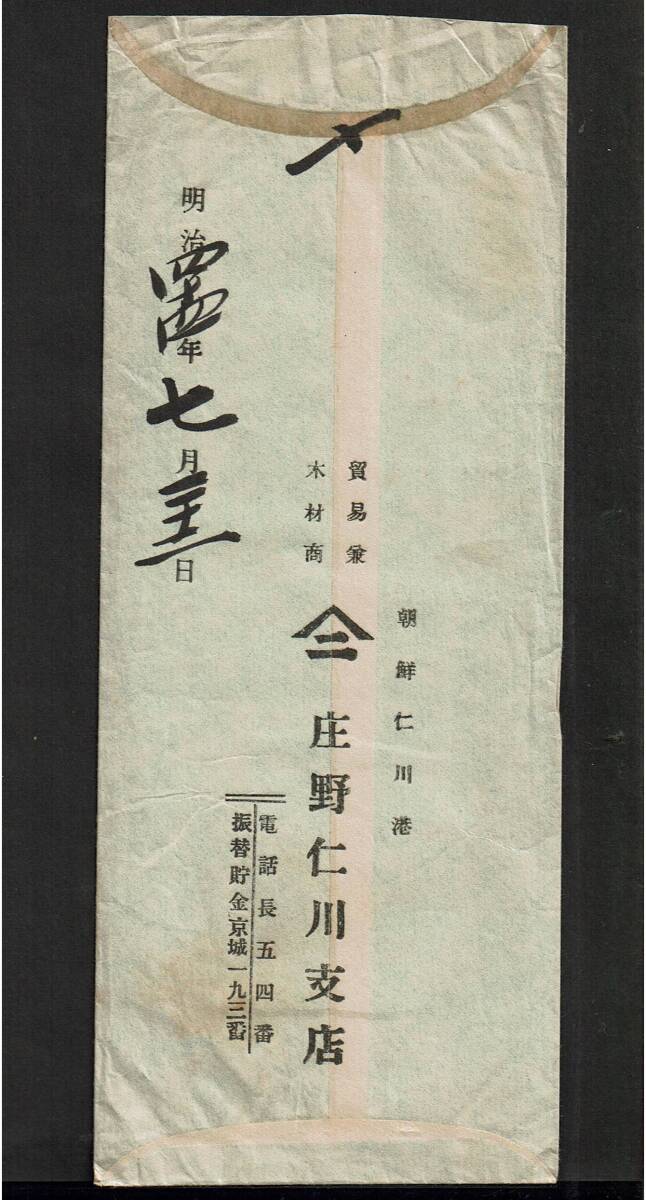 〆
朝鮮仁川港
貿易兼
木材商
二
庄野仁川支店
電話長五四番
振替貯金京城一九三番
明治四四年七月三十一日